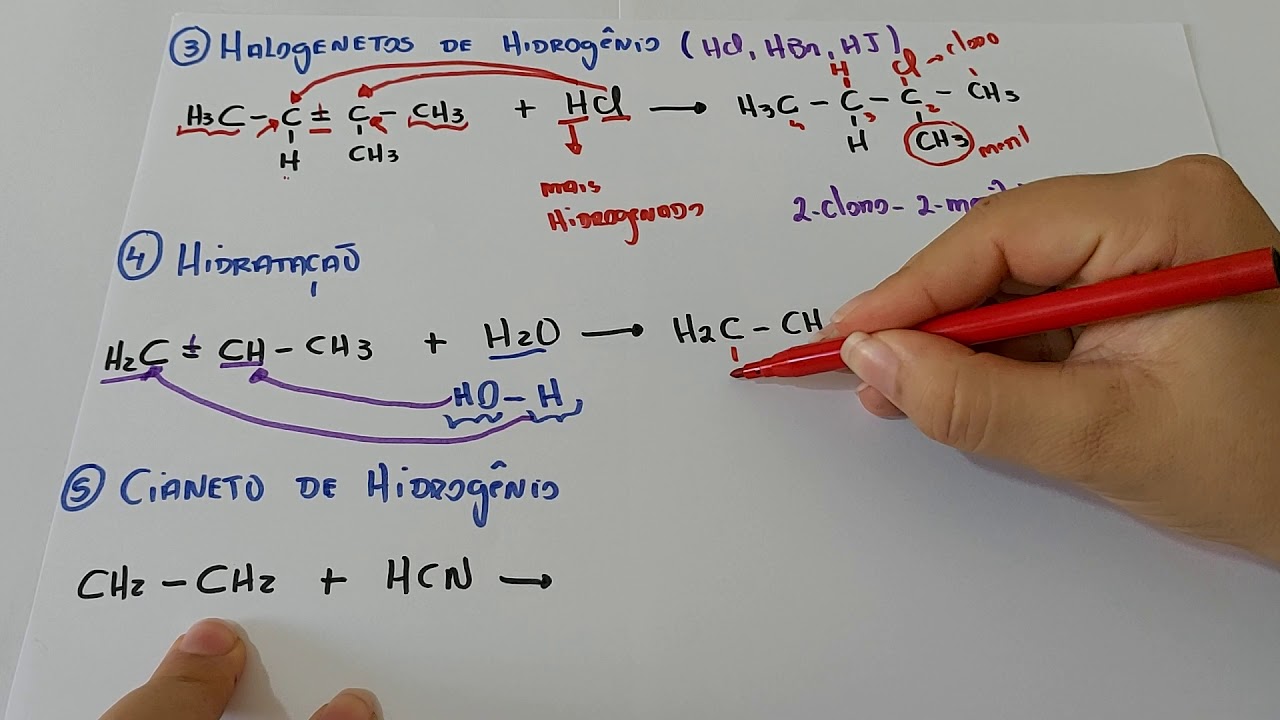 ③ HALOGENETOS DE HIDROGÊNIO (HCl, HBr, HI)
H3C – C = C – CH3 + HCl → H3C – C – C – CH3
H CH3 H Cl → cloro
4 3 2 1
H CH3 metil
mais
HIDROGENADO
2-cloro-2-
④ HIDRATAÇÃO
H2C = CH – CH3 + H2O → H2C – CH
HO – H
⑤ CIANETO DE HIDROGÊNIO
CH2 – CH2 + HCN →